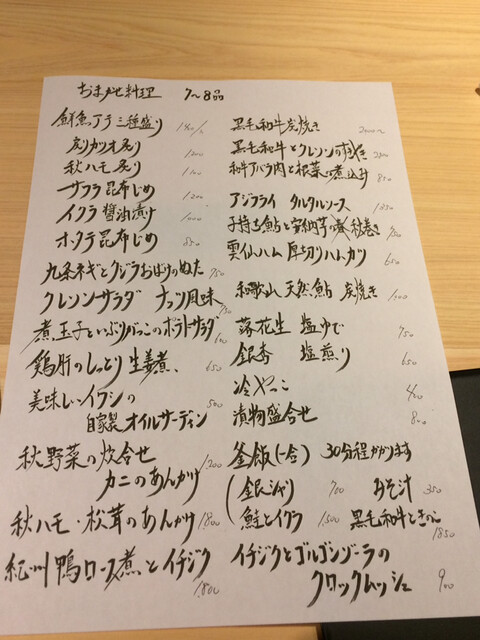 おまかせ料理 7〜8品
鮮魚アテ三種盛り
炙りカツオ炙り 1200
秋ハモ炙り 1100
サワラ昆布じめ 1200
イクラ醤油漬け 1000
ホタテ昆布じめ 850
九条ネギとクジラおばけのぬた 750
クレソンサラダ ナッツ風味 750
煮玉子といぶりがっこのポテトサラダ 600
鶏肝のしっとり生姜煮 650
美味しいイワシの 500
自家製オイルサーディン
秋野菜の炊合せ
カニのあんかけ 1200
秋ハモ・松茸のあんかけ 1800
紀州鴨ロース煮とイチジク 1800
黒毛和牛炭焼き 2000〜
黒毛和牛とクレソンのすき焼き
和牛アバラ肉と根菜の煮込み 850
アジフライ タルタルソース
子持ち鮎と安納芋の秋巻き
雲仙ハム厚切りハムカツ 650
和歌山 天然鮎 炭焼き
落花生 塩ゆで 750
銀杏 塩煎り 650
冷やっこ 400
漬物盛合せ 800
釜飯(一合) 30分程かかります
銀シャリ 700 おみそ汁 350
鮭とイクラ 1500 黒毛和牛ときのこ 1850
イチジクとゴルゴンゾーラの
クロックムッシュ 900